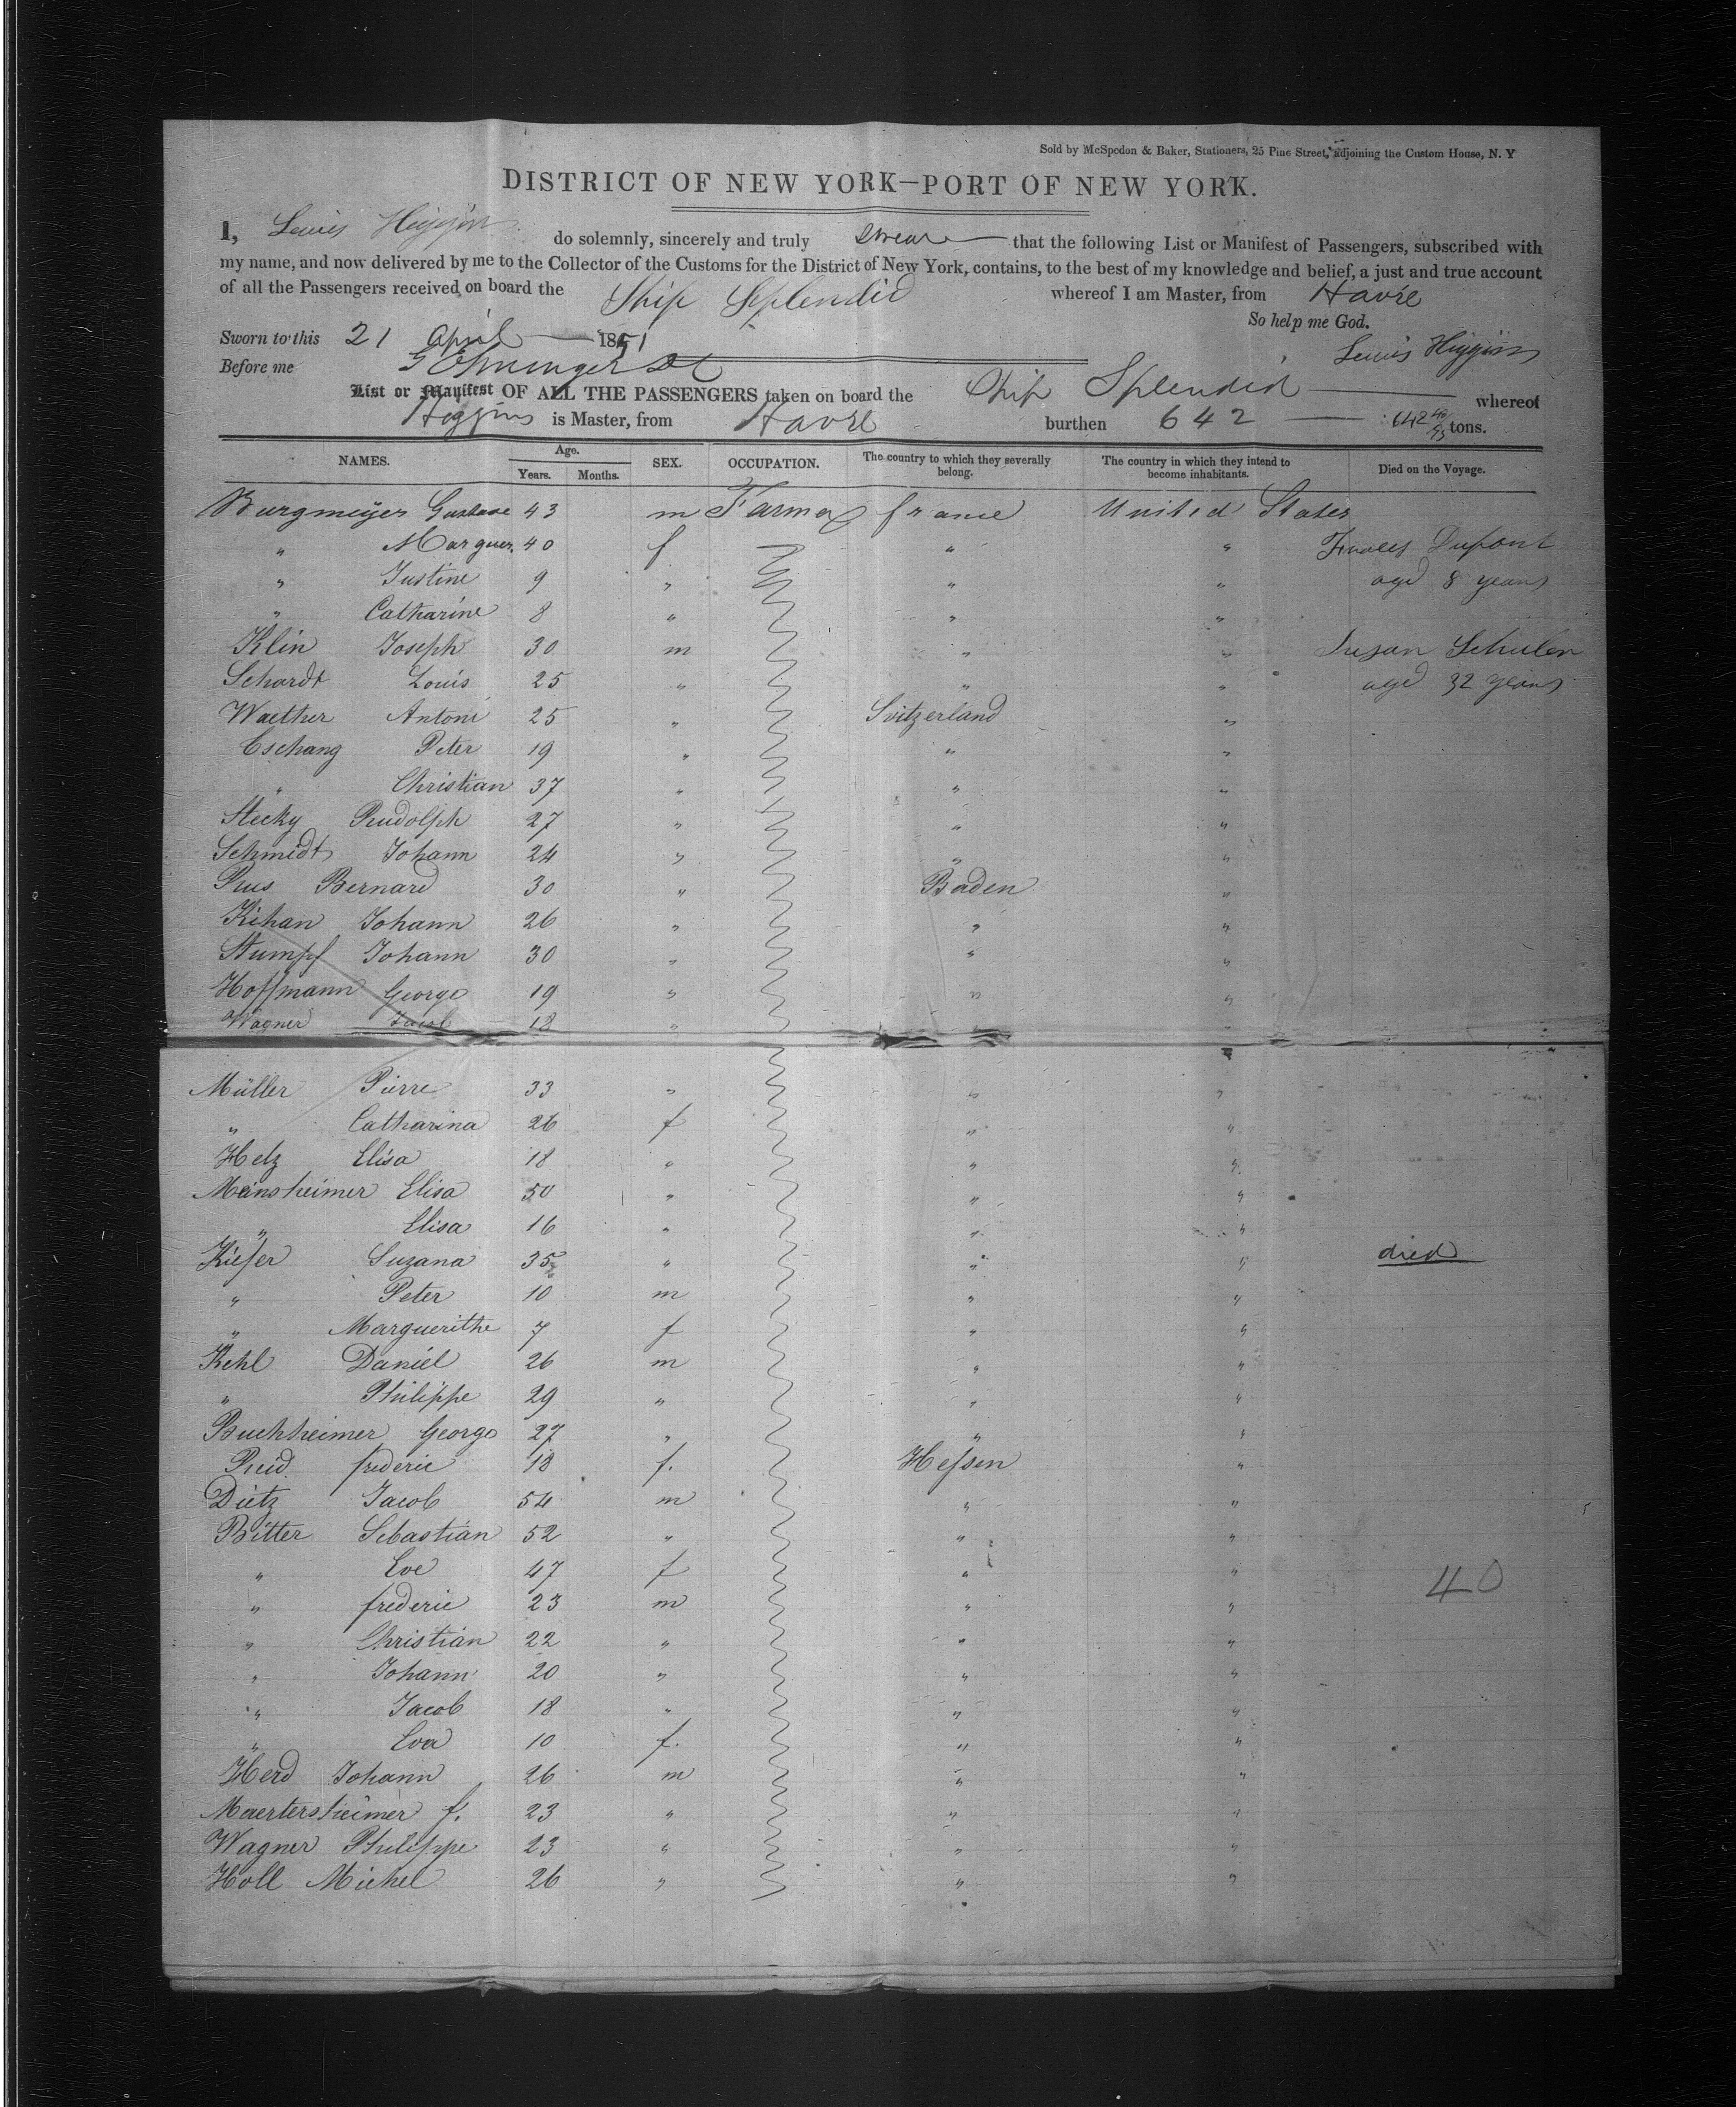 Sold by McSpedon & Baker, Stationers, 25 Pine Street, adjoining the Custom House, N. Y
DISTRICT OF NEW YORK—PORT OF NEW YORK.
I, Lewis Higgins do solemnly, sincerely and truly swear that the following List or Manifest of Passengers, subscribed with
my name, and now delivered by me to the Collector of the Customs for the District of New York, contains, to the best of my knowledge and belief, a just and true account
of all the Passengers received on board the Ship Splendid whereof I am Master, from Havre
So help me God.
Sworn to this 21 April 1851 Lewis Higgins
Before me
List or Manifest OF ALL THE PASSENGERS taken on board the Ship Splendid whereof
Higgins is Master, from Havre burthen 642 642 tons.
NAMES. Age. Years. Months. SEX. OCCUPATION. The country to which they severally belong. The country in which they intend to become inhabitants. Died on the Voyage.
Burgmeyer Gustave 43 m Farmer france United States
" Marguer. 40 f " " Dupont
" Justine 9 " " " aged 8 years
" Catharine 8 " " "
Klin Joseph 30 m " " Susan Schulen
Schardt Louis 25 " " " aged 32 years
Waether Antoni 25 " Switzerland "
Eschang Peter 19 " " "
" Christian 37 " " "
Stecky Rudolph 27 " " "
Schmidt Johann 24 " " "
Pius Bernard 30 " Baden "
Kihan Johann 26 " " "
Stumpf Johann 30 " " "
Hoffmann George 19 " " "
Wagner Jacob 18 "
Müller Pierre 33 " " "
" Catharina 26 f " "
Hetz Elisa 18 " " "
Mansheimer Elisa 50 " " "
" Elisa 16 " " "
Kiefer Suzana 35 " " " died
" Peter 10 m " "
" Marguerithe 7 f " "
Kehl Daniel 26 m " "
" Philippe 29 " " "
Buchheimer George 27 " " "
frederic 18 f. Hessen "
Dietz Jacob 54 m " "
Ritter Sebastian 52 " " "
" Eve 47 f " " 40
" frederic 23 m " "
" Christian 22 " " "
" Johann 20 " " "
" Jacob 18 " " "
" Eva 10 f. " "
Herd Johann 26 m " "
Maertersheimer f. 23 " " "
Wagner Philippe 23 " " "
Holl Michel 26 " " "